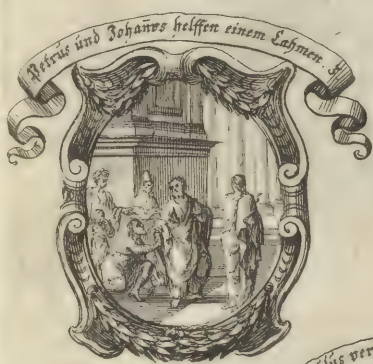 Petrus und Johañes helffen einem Lahmen. 3.